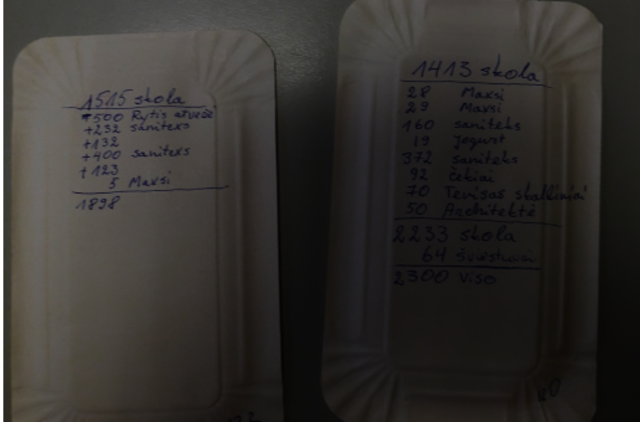 1515 skola
+500 Rytis atvežė
+232 saniteks
+132
+400 saniteks
+123
5 Maxsi
1898
1413 skola
28 Maxsi
29 Maxsi
160 saniteks
19 jogurt
372 saniteks
92 čekiai
70 Tenisas
50 Architektė
2233 skola
64
2300 viso